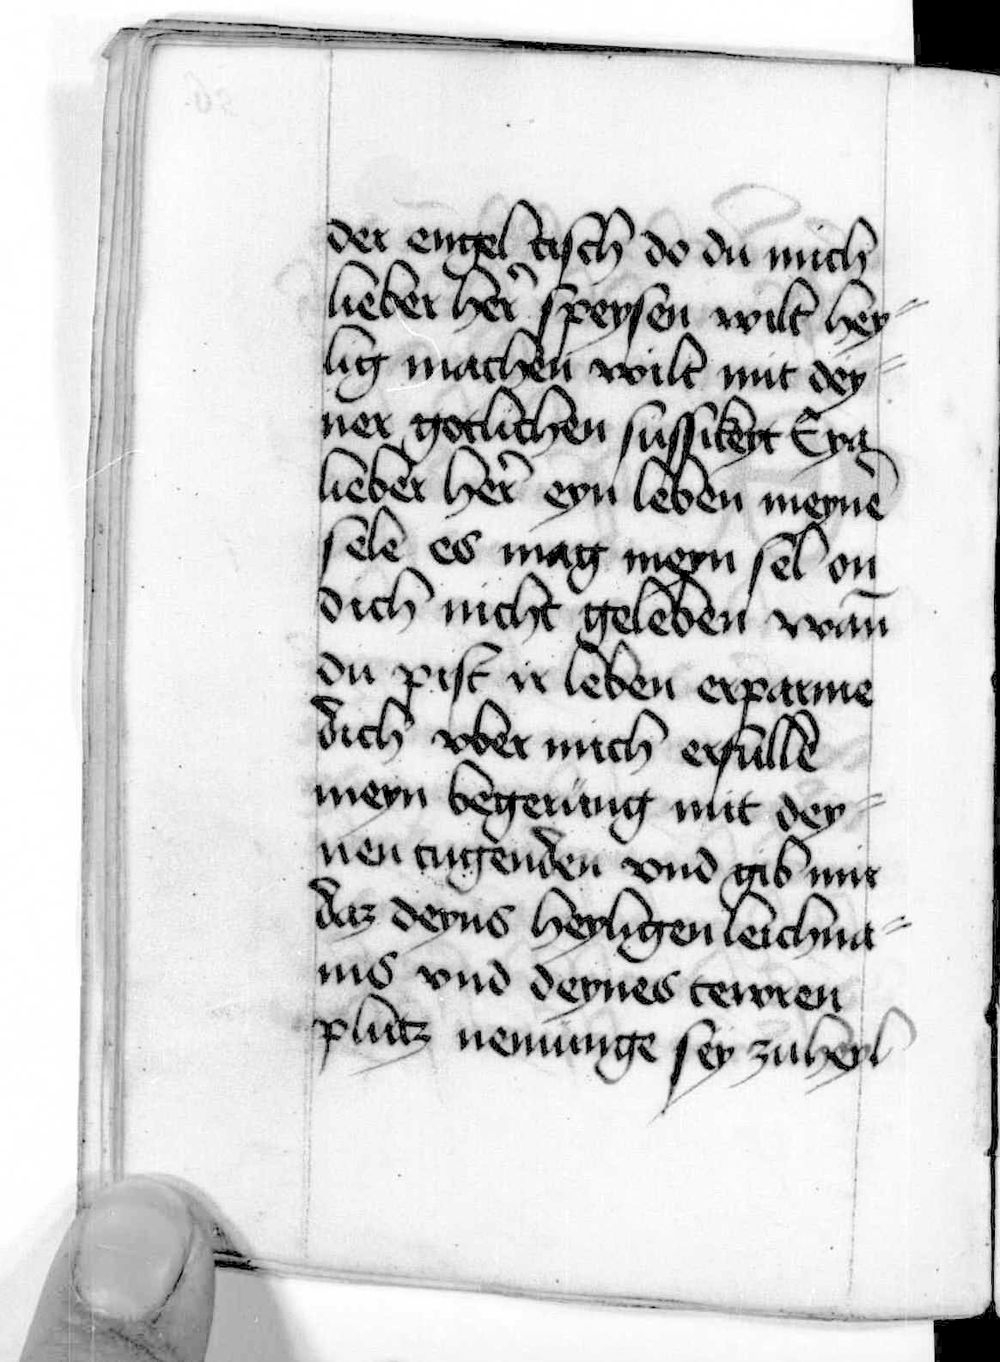 der engel tisch do du mich
lieber her̄ speysen wilt hey=
lig machen wilt mit dey=
ner gotlichen sussikeyt Eya
lieber her̄ eyn leben meynē
sele es mag meyn sel on
dich nicht geleben wañ
du pist ir leben erparme
dich vber mich erfulle
meyn begerung mit dey=
nen tugenden vnd gib mir
daz deyns heyligen leichna=
ms vnd deynes tewren
plutz nemunge sey zu heyl